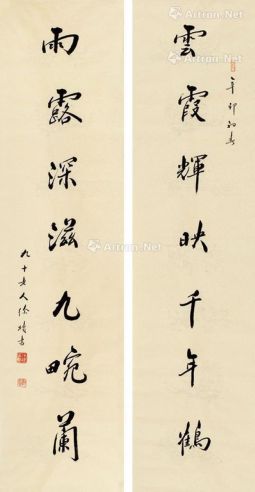 雲霞輝映千年鶴
辛卯初春
雨露深滋九畹蘭
九十老人徐楨書
Artron.Net